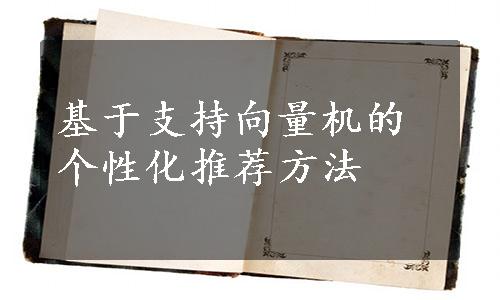 基于支持向量机的
个性化推荐方法